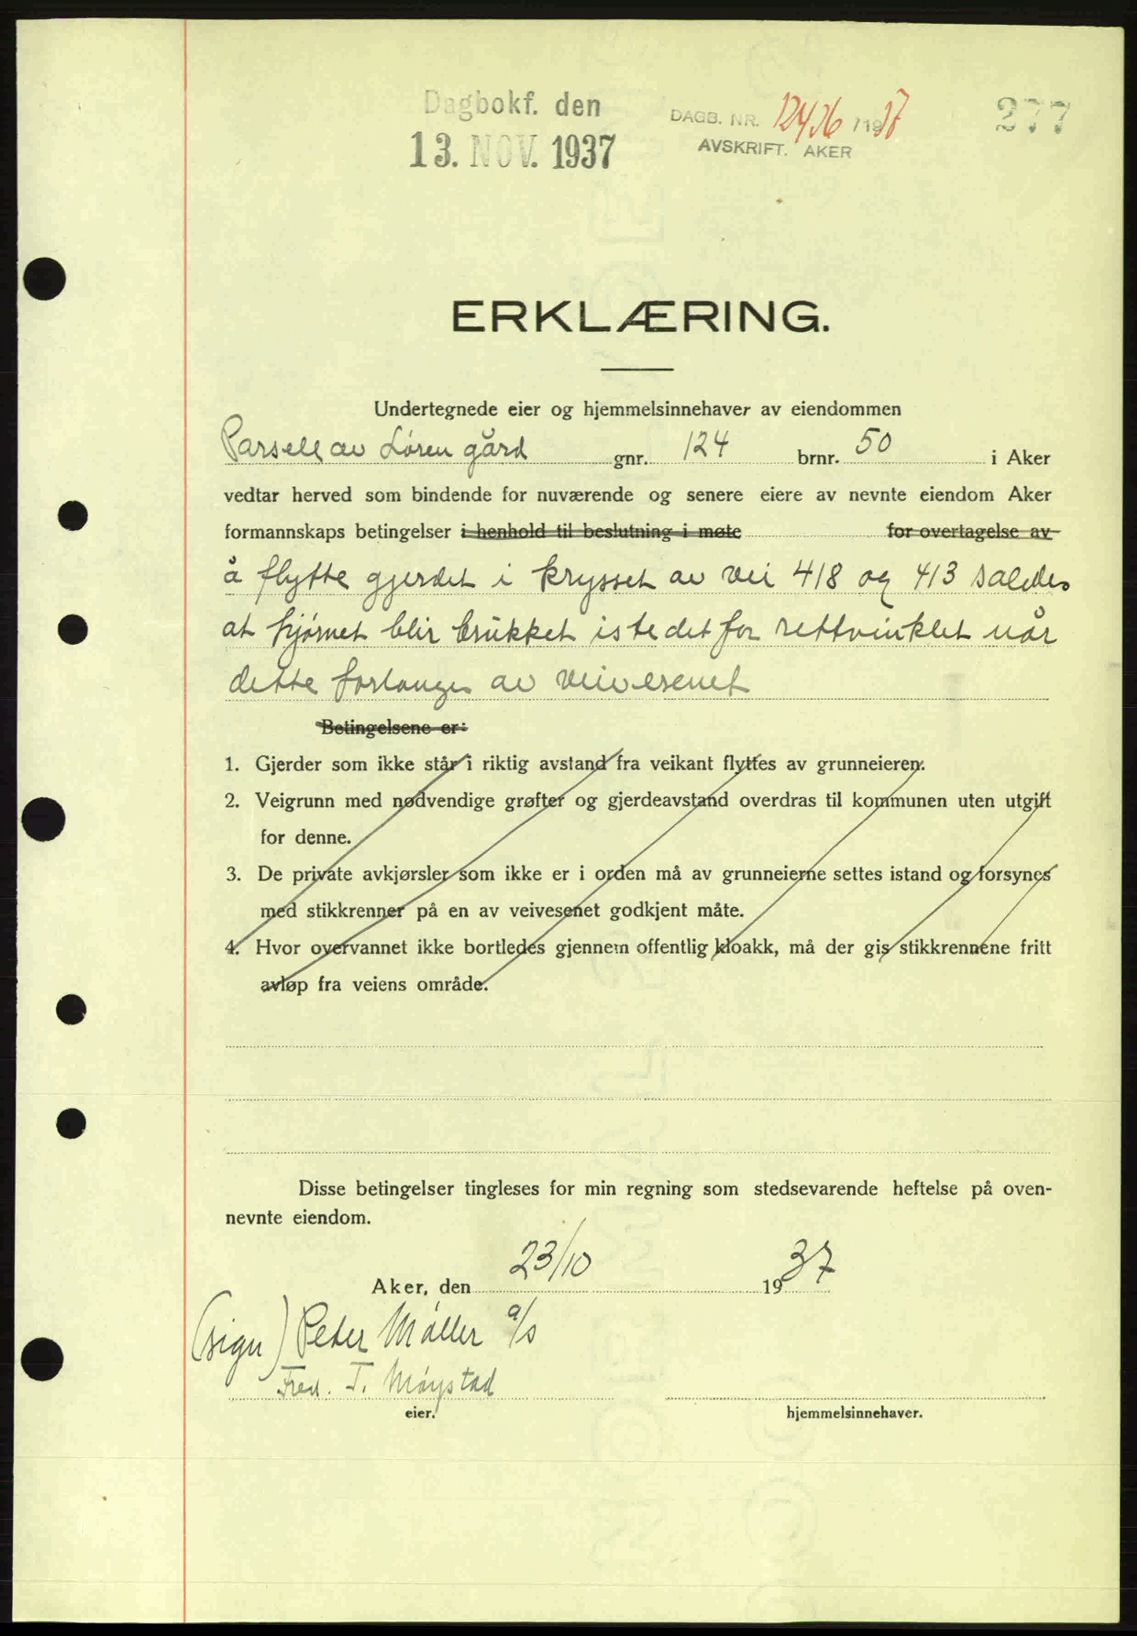 Dagbokf. den
13. NOV. 1937
DAGB. NR. 12436/1937
AVSKRIFT. AKER
277
ERKLÆRING.
Undertegnede eier og hjemmelsinnehaver av eiendommen
Parsell av Løren gård gnr. 124 brnr. 50 i Aker
vedtar herved som bindende for nuværende og senere eiere av nevnte eiendom Aker
formannskaps betingelser i henhold til beslutning i møte for overtagelse av
å flytte gjerdet i krysset av vei 418 og 413 således
at hjørnet blir brukket istedet for rettvinklet når
dette forlanges av veivesenet
Betingelsene er:
1. Gjerder som ikke står i riktig avstand fra veikant flyttes av grunneieren.
2. Veigrunn med nødvendige grøfter og gjerdeavstand overdras til kommunen uten utgift
for denne.
3. De private avkjørsler som ikke er i orden må av grunneierne settes istand og forsynes
med stikkrenner på en av veivesenet godkjent måte.
4. Hvor overvannet ikke bortledes gjennem offentlig kloakk, må der gis stikkrennene fritt
avløp fra veiens område.
Disse betingelser tingleses for min regning som stedsevarende heftelse på oven-
nevnte eiendom.
Aker, den 23/10 1937
(sign) Peter Møller a/s
Fred. T. Møystad
eier. hjemmelsinnehaver.